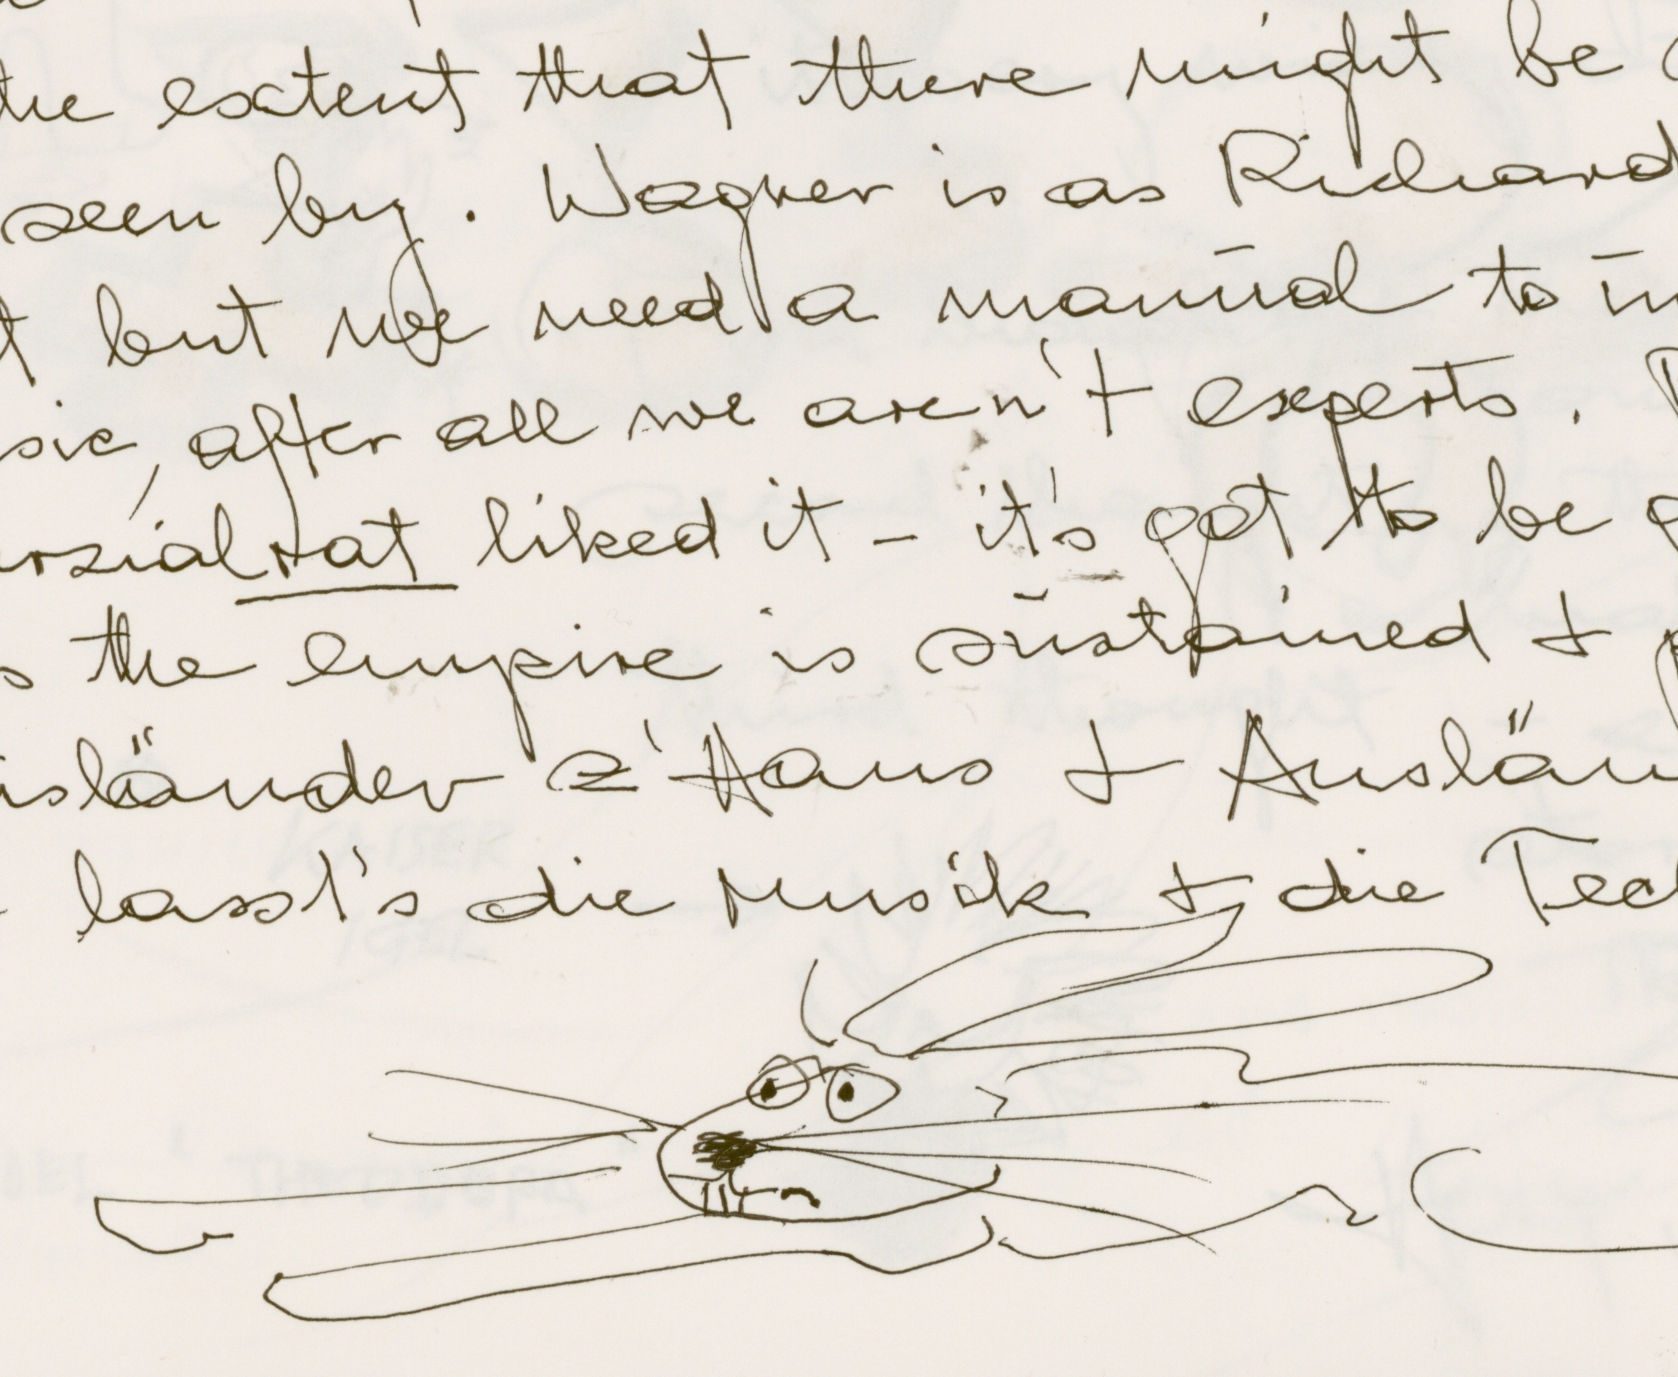 the extent that there might be
seen by. Wagner is as Richard
but we need a manual to in
sic, after all we aren't experts.
rzialrat liked it - it's got to be
s the empire is sustained +
isländer z'Haus + Auslän
lasst's die Musik + die Tec